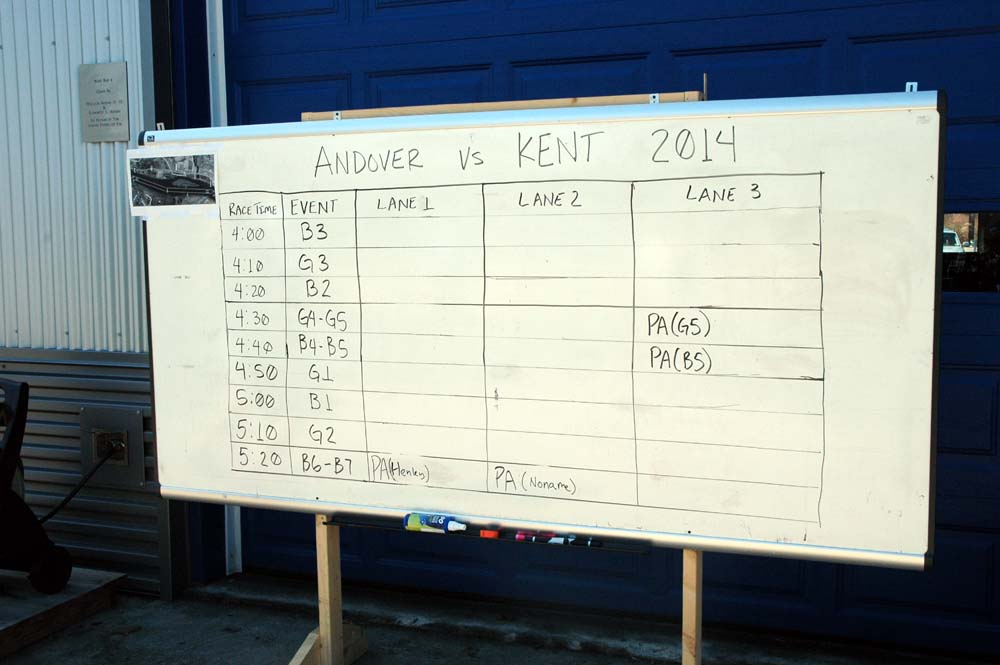 ANDOVER vs KENT 2014
RACE TIME EVENT LANE 1 LANE 2 LANE 3
4:00 B3
4:10 G3
4:20 B2
4:30 G4-G5 PA(G5)
4:40 B4-B5 PA(B5)
4:50 G1
5:00 B1
5:10 G2
5:20 B6-B7 PA(Henley) PA(Noname)